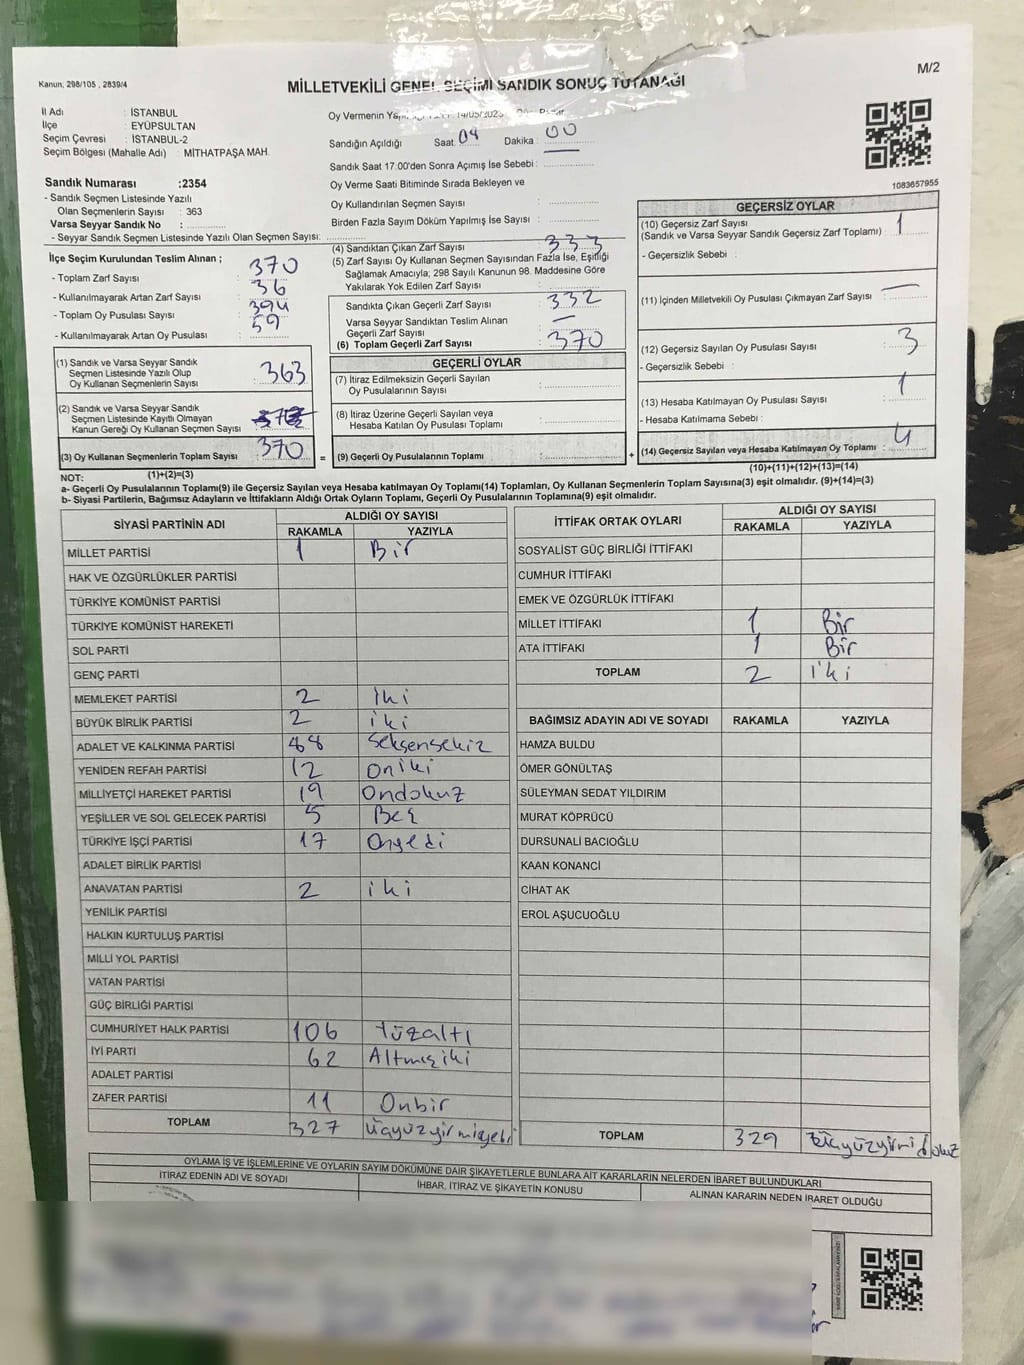 Kanun; 298/105 , 2839/4
M/2
MİLLETVEKİLİ GENEL SEÇİMİ SANDIK SONUÇ TUTANAĞI
İl Adı : İSTANBUL
İlçe : EYÜPSULTAN
Seçim Çevresi : İSTANBUL-2
Seçim Bölgesi (Mahalle Adı) : MİTHATPAŞA MAH.
Sandık Numarası :2354
- Sandık Seçmen Listesinde Yazılı
Olan Seçmenlerin Sayısı : 363
Varsa Seyyar Sandık No :
- Seyyar Sandık Seçmen Listesinde Yazılı Olan Seçmen Sayısı:
Oy Vermenin 14/05/2023 Pazar
Sandığın Açıldığı Saat: 04 Dakika : 00
Sandık Saat 17:00'den Sonra Açımış İse Sebebi :
Oy Verme Saati Bitiminde Sırada Bekleyen ve
Oy Kullandırılan Seçmen Sayısı :
Birden Fazla Sayım Döküm Yapılmış İse Sayısı :
1083657955
İlçe Seçim Kurulundan Teslim Alınan ;
- Toplam Zarf Sayısı : 370
- Kullanılmayarak Artan Zarf Sayısı : 36
- Toplam Oy Pusulası Sayısı : 394
- Kullanılmayarak Artan Oy Pusulası : 59
(1) Sandık ve Varsa Seyyar Sandık
Seçmen Listesinde Yazılı Olup
Oy Kullanan Seçmenlerin Sayısı : 363
(2) Sandık ve Varsa Seyyar Sandık
Seçmen Listesinde Kayıtlı Olmayan
Kanun Gereği Oy Kullanan Seçmen Sayısı :
(3) Oy Kullanan Seçmenlerin Toplam Sayısı : 370 =
(4) Sandıktan Çıkan Zarf Sayısı : 333
(5) Zarf Sayısı Oy Kullanan Seçmen Sayısından Fazla İse, Eşitliği
Sağlamak Amacıyla; 298 Sayılı Kanunun 98. Maddesine Göre
Yakılarak Yok Edilen Zarf Sayısı :
Sandıkta Çıkan Geçerli Zarf Sayısı : 332
Varsa Seyyar Sandıktan Teslim Alınan
Geçerli Zarf Sayısı : —
(6) Toplam Geçerli Zarf Sayısı : 370
GEÇERLİ OYLAR
(7) İtiraz Edilmeksizin Geçerli Sayılan
Oy Pusulalarının Sayısı :
(8) İtiraz Üzerine Geçerli Sayılan veya
Hesaba Katılan Oy Pusulası Toplamı :
(9) Geçerli Oy Pusulalarının Toplamı : +
GEÇERSİZ OYLAR
(10) Geçersiz Zarf Sayısı
(Sandık ve Varsa Seyyar Sandık Geçersiz Zarf Toplamı) : 1
- Geçersizlik Sebebi :
(11) İçinden Milletvekili Oy Pusulası Çıkmayan Zarf Sayısı : —
(12) Geçersiz Sayılan Oy Pusulası Sayısı : 3
- Geçersizlik Sebebi :
(13) Hesaba Katılmayan Oy Pusulası Sayısı : 1
- Hesaba Katılmama Sebebi :
(14) Geçersiz Sayılan veya Hesaba Katılmayan Oy Toplamı : 4
NOT: (1)+(2)=(3)
(10)+(11)+(12)+(13)=(14)
a- Geçerli Oy Pusulalarının Toplamı(9) ile Geçersiz Sayılan veya Hesaba katılmayan Oy Toplamı(14) Toplamları, Oy Kullanan Seçmenlerin Toplam Sayısına(3) eşit olmalıdır. (9)+(14)=(3)
b- Siyasi Partilerin, Bağımsız Adayların ve İttifakların Aldığı Ortak Oyların Toplamı, Geçerli Oy Pusulalarının Toplamına(9) eşit olmalıdır.
SİYASİ PARTİNİN ADI ALDIĞI OY SAYISI
RAKAMLA YAZIYLA
MİLLET PARTİSİ 1 Bir
HAK VE ÖZGÜRLÜKLER PARTİSİ
TÜRKİYE KOMÜNİST PARTİSİ
TÜRKİYE KOMÜNİST HAREKETİ
SOL PARTİ
GENÇ PARTİ
MEMLEKET PARTİSİ 2 iki
BÜYÜK BİRLİK PARTİSİ 2 iki
ADALET VE KALKINMA PARTİSİ 88 Seksensekiz
YENİDEN REFAH PARTİSİ 12 Oniki
MİLLİYETÇİ HAREKET PARTİSİ 19 Ondokuz
YEŞİLLER VE SOL GELECEK PARTİSİ 5 Beş
TÜRKİYE İŞÇİ PARTİSİ 17 Onyedi
ADALET BİRLİK PARTİSİ
ANAVATAN PARTİSİ 2 iki
YENİLİK PARTİSİ
HALKIN KURTULUŞ PARTİSİ
MİLLİ YOL PARTİSİ
VATAN PARTİSİ
GÜÇ BİRLİĞİ PARTİSİ
CUMHURİYET HALK PARTİSİ 106 Yüzaltı
İYİ PARTİ 62 Altmışiki
ADALET PARTİSİ
ZAFER PARTİSİ 11 Onbir
TOPLAM 327 Üçyüzyirmiyedi
İTTİFAK ORTAK OYLARI ALDIĞI OY SAYISI
RAKAMLA YAZIYLA
SOSYALİST GÜÇ BİRLİĞİ İTTİFAKI
CUMHUR İTTİFAKI
EMEK VE ÖZGÜRLÜK İTTİFAKI
MİLLET İTTİFAKI 1 Bir
ATA İTTİFAKI 1 Bir
TOPLAM 2 iki
BAĞIMSIZ ADAYIN ADI VE SOYADI RAKAMLA YAZIYLA
HAMZA BULDU
ÖMER GÖNÜLTAŞ
SÜLEYMAN SEDAT YILDIRIM
MURAT KÖPRÜCÜ
DURSUNALİ BACIOĞLU
KAAN KONANCİ
CİHAT AK
EROL AŞUCUOĞLU
TOPLAM 329 Üçyüzyirmidokuz
OYLAMA İŞ VE İŞLEMLERİNE VE OYLARIN SAYIM DÖKÜMÜNE DAİR ŞİKAYETLERLE BUNLARA AİT KARARLARIN NELERDEN İBARET BULUNDUKLARI
İTİRAZ EDENİN ADI VE SOYADI İHBAR, İTİRAZ VE ŞİKAYETİN KONUSU ALINAN KARARIN NEDEN İBARET OLDUĞU